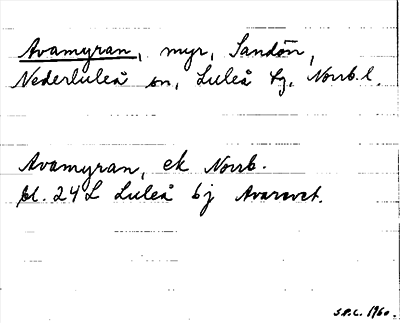 Avamyran, myr, Sandön,
Nederluleå sn, Luleå tg, Norrb. l.
Avamyran, ek Norrb.
bl. 24 L Luleå bj Avarovet.
S.P.L. 1960.